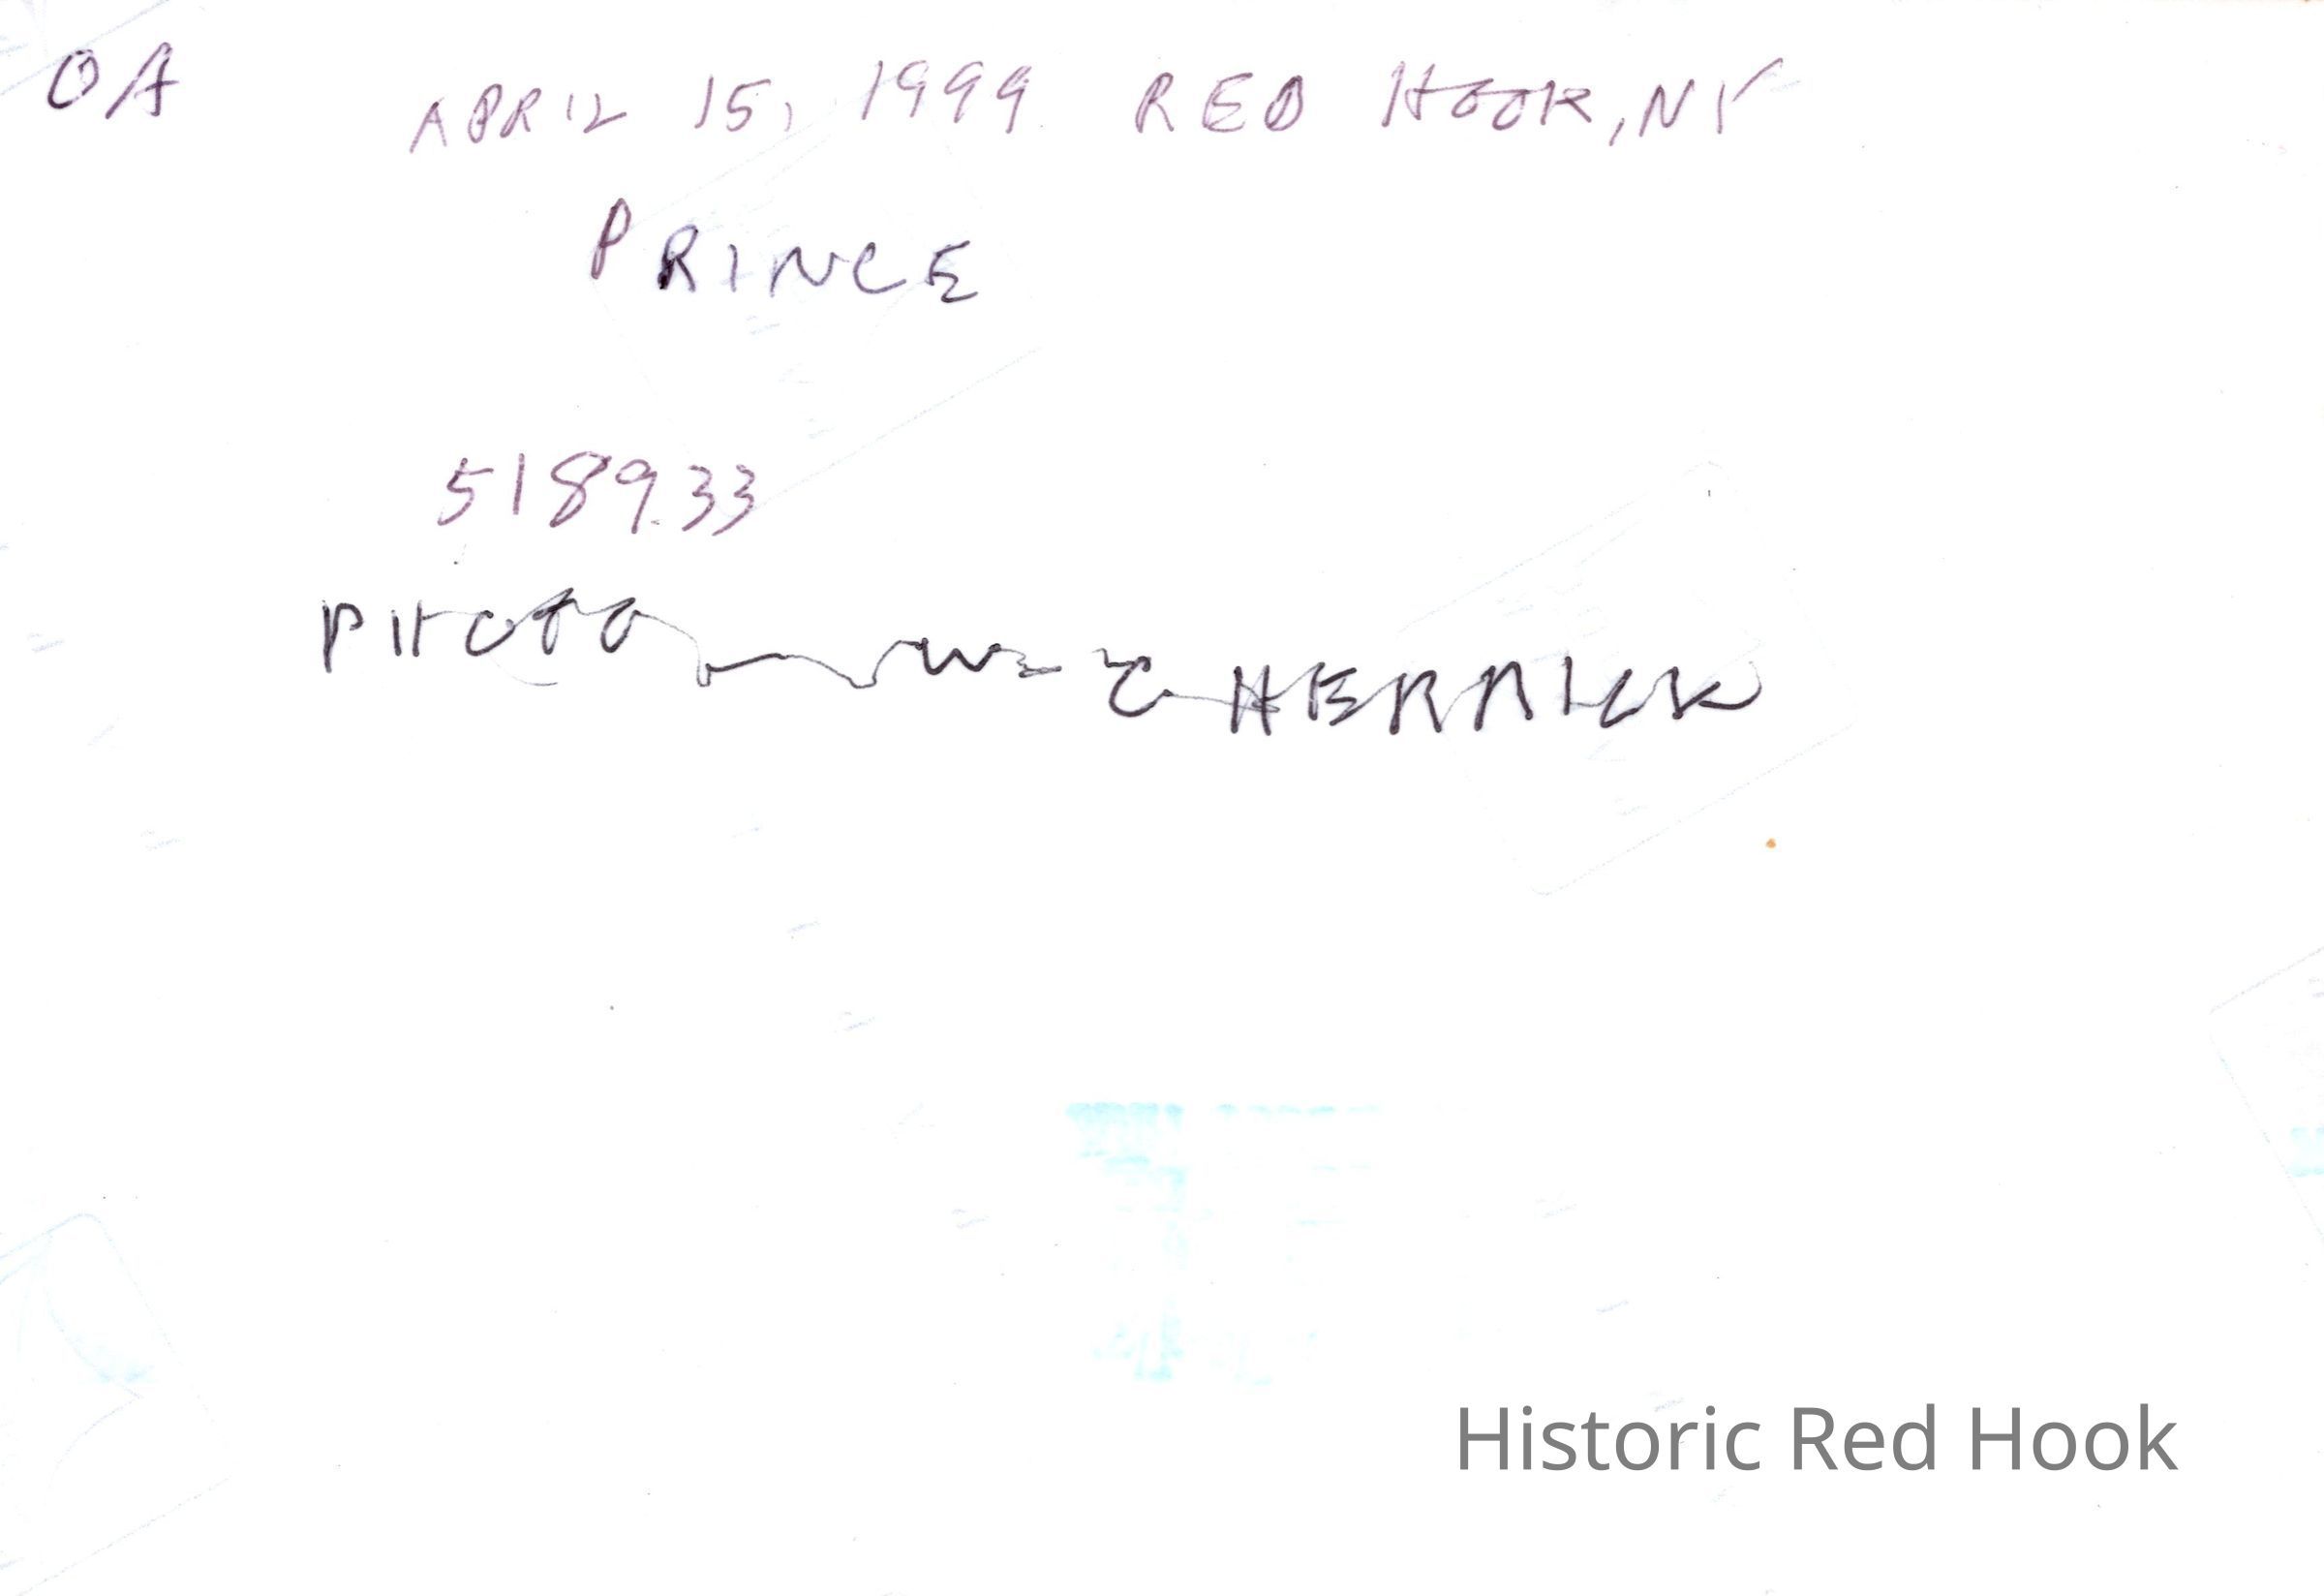 OA APRIL 15, 1999 RED HOOK, NY
PRINCE
5189.33
PHOTO HERRICK
Historic Red Hook